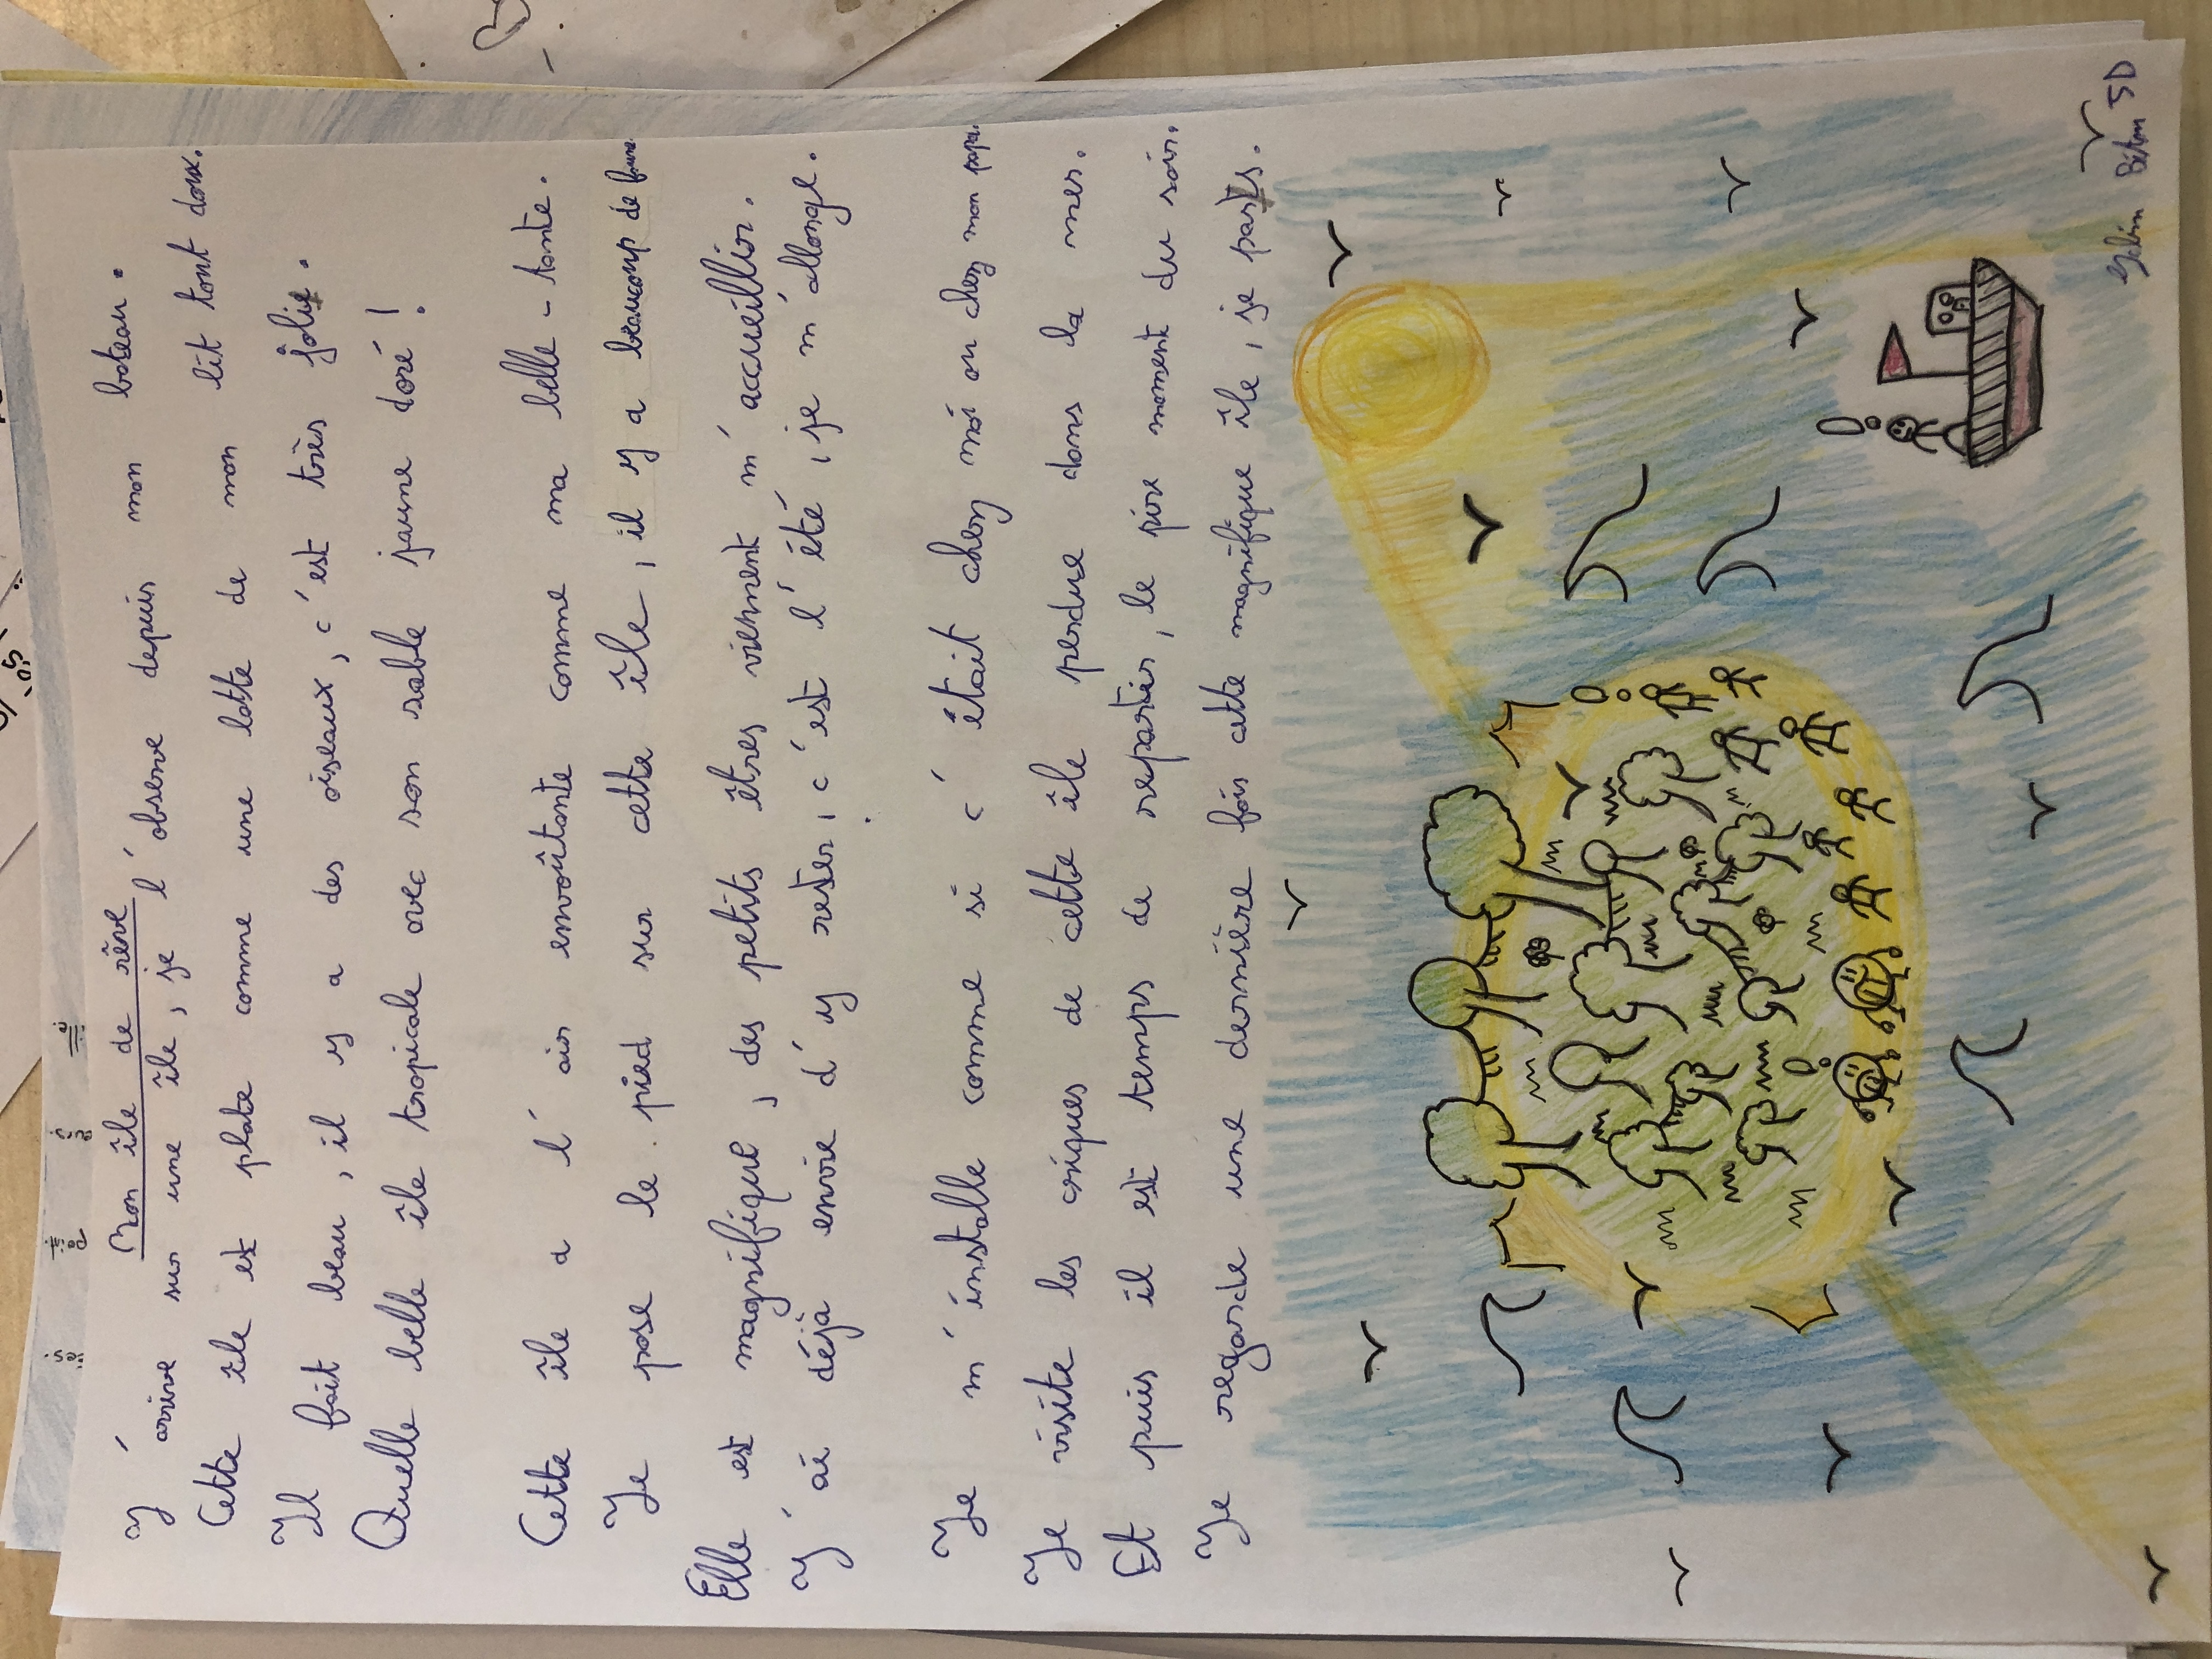 Mon île de rêve
J'arrive sur une île, je l'observe depuis mon bateau.
Cette île est plate comme une latte de mon lit tout doux.
Il fait beau, il y a des oiseaux, c'est très joli.
Quelle belle île tropicale avec son sable jaune doré !
Cette île a l'air envoûtante comme ma belle-tante.
Je pose le pied sur cette île, il y a beaucoup de
Elle est magnifique, des petits êtres viennent m'accueillir.
J'ai déjà envie d'y rester, c'est l'été, je m'allonge.
Je m'installe comme si c'était chez moi ou chez mon papa.
Je visite les criques de cette île perdue dans la mer.
Et puis il est temps de repartir, le pire moment du soir.
Je regarde une dernière fois cette magnifique île, je pars.
5D